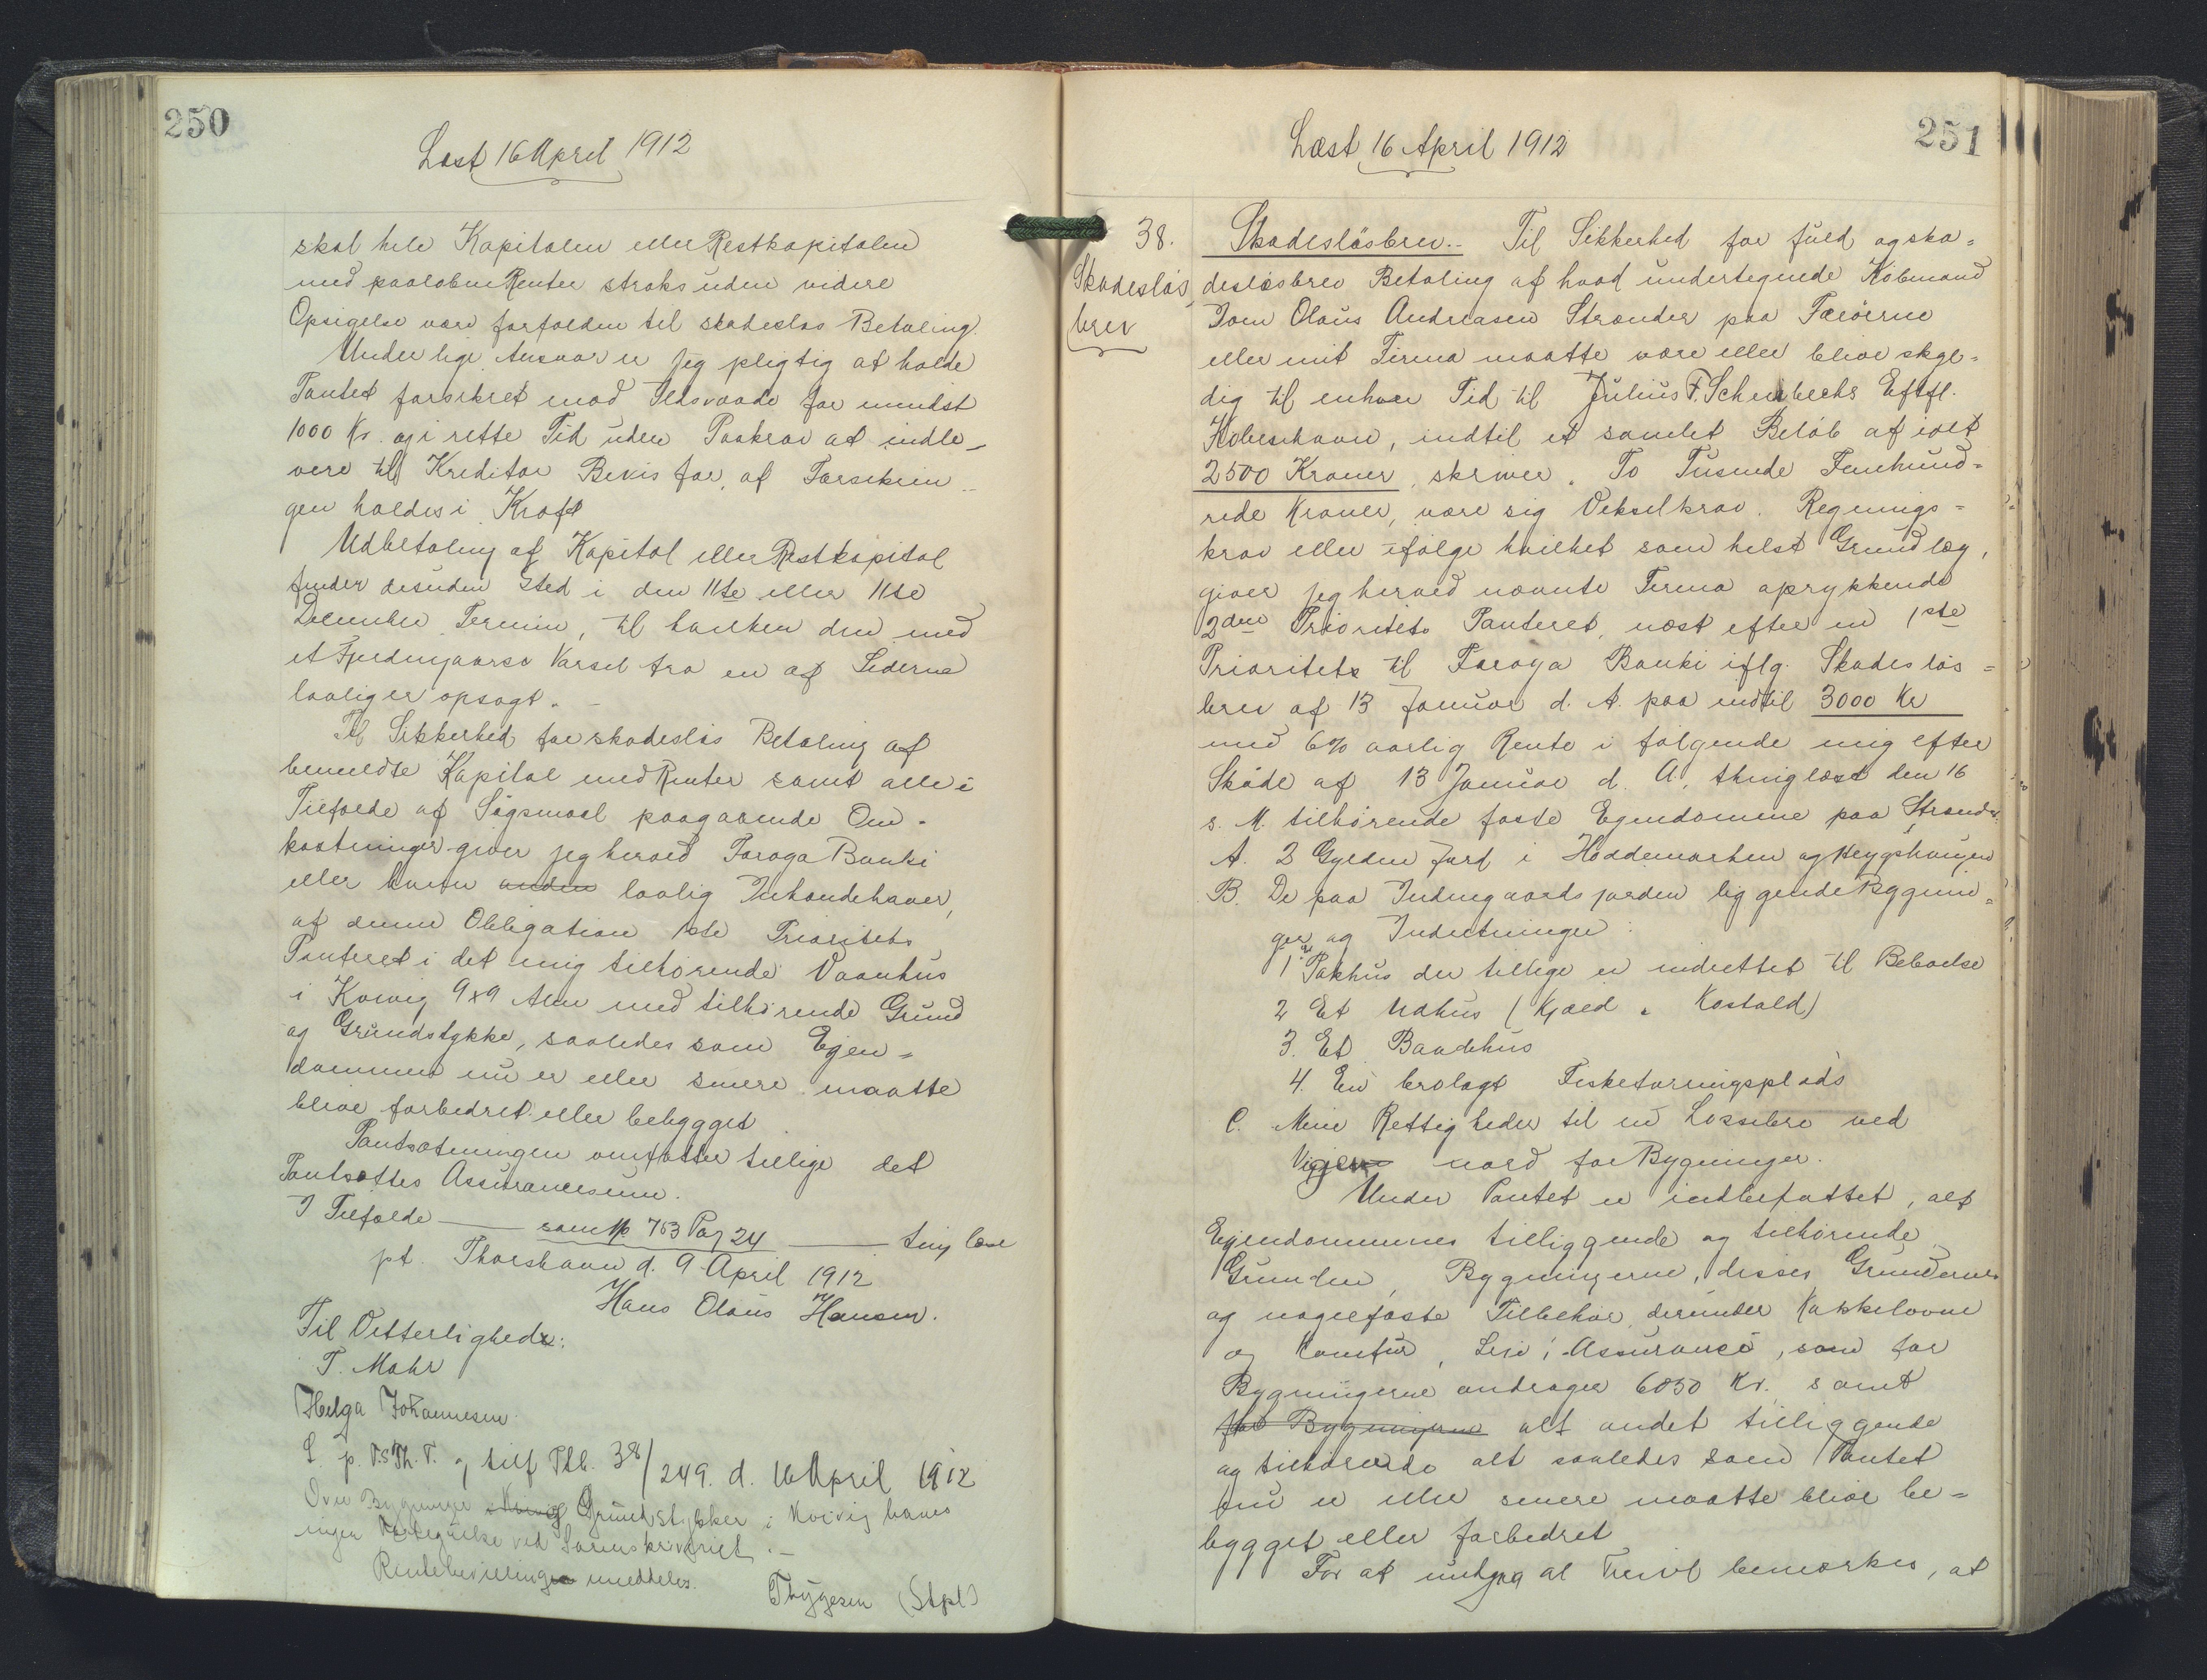 250
Læst 16 April 1912
skal hele Kapitalen eller Restkapitalen
med paaløbne Renter straks uden videre
Opsigelse være forfalden til skadesløs Betaling.
Under lige Ansvar er jeg pligtig at holde
Pantet forsikret mod Ildsvaade for mindst
1000 Kr. og i rette Tid uden Paakrav at indle-
vere til Kreditor Bevis for, at Forsikrin-
gen holdes i Kraft
Udbetaling af Kapital eller Restkapital
finder desuden Sted i den 11te eller 11te
December Termin, til hvilken den med
et Fjerdingaars Varsel fra en af Siderne
lovlig er opsagt.
Til Sikkerhed for skadesløs Betaling af
bemeldte Kapital med Renter samt alle i
Tilfælde af Søgsmaal paagaaende Om-
kostninger giver jeg herved Føroya Banki
eller hver anden lovlig Ihændehaver,
af denne Obligation 1ste Prioritets
Panteret i det mig tilhørende Vaanhus
i Kvivig 9x9 Alen med tilhørende Grund
og Grundstykke, saaledes som Ejen=
dommen nu er eller senere maatte
blive forbedret eller bebygget
Pantsætningen omfatter tillige det
Pantsattes Assurancesum.
I Tilfælde — som No 753 Pag 24 — ting læse
pt. Thorshavn d. 9 April 1912
Hans Olaus Hansen.
Til Vitterlighed:
T. Mohr
Helga Johannesen
L. p. V.S Th. T. og tilf Ptb. 38/249. d. 16 April 1912
Over Bygninger Grundstykker i Kvivig haves
ingen ved Sorenskriveriet.-
Rentebevilling meddeles.
Thygesen (Stpl)
251
Læst 16 April 1912
38.
Skadesløs
brev
Skadesløsbrev.- Til Sikkerhed for fuld og ska=
desløsbrev Betaling af hvad undertegnede Købmand
Joen Olaus Andreasen Strænder paa Færøerne
eller mit Firma maatte være eller blive skyl=
dig til enhver Tid til Julius F. Schierbecks Eftfl.
København, indtil et samlet Beløb af ialt
2500 Kroner, skriver. To Tusinde Femhund=
rede Kroner, være sig Vekselkrav. Regnings=
krav eller ifølge hvilket som helst Grundlag,
giver jeg herved nævnte Firma oprykkende
2den Prioritets Panteret, næst efter en 1ste
Prioritets til Føroya Banki iflg. Skadesløs=
brev af 13 Januar d. A. paa indtil 3000 Kr
med 6% aarlig Rente i følgende mig efter
Skøde af 13 Januar d. A, thinglæst den 16
s. M. tilhørende faste Ejendomme paa Strænder.
A. 2 Gylden Jord i Høddemarken og Heygshaugen
B. De paa Indmgaardsjorden liggende Bygnin=
ger og Indretninger:
1. et Pakhus der tillige er indrettet til Beboelse
2 Et Udhus (Kjæld. & Kostald)
3. Et Baadehus
4. En brolagt Fisketørringsplads
C. Mine Rettigheder til en Lossebro ved
Vigen nord for Bygninger.
Under Pantet er indbefattet, alt
Ejendommenes tilliggende og tilhørende
Grunden, Bygningerne, disses Grundmure
og nagelfaste Tilbehør, derunder Kakkelovne
og Komfur, Lese i Assurance, som for
Bygningerne andrager 6850 Kr. samt
for Bygningerne alt andet tilliggende
og tilhørende alt saaledes som Pantet
nu er eller senere maatte blive be=
bygget eller forbedret
For at undgaa al Tvivl bemærkes, at